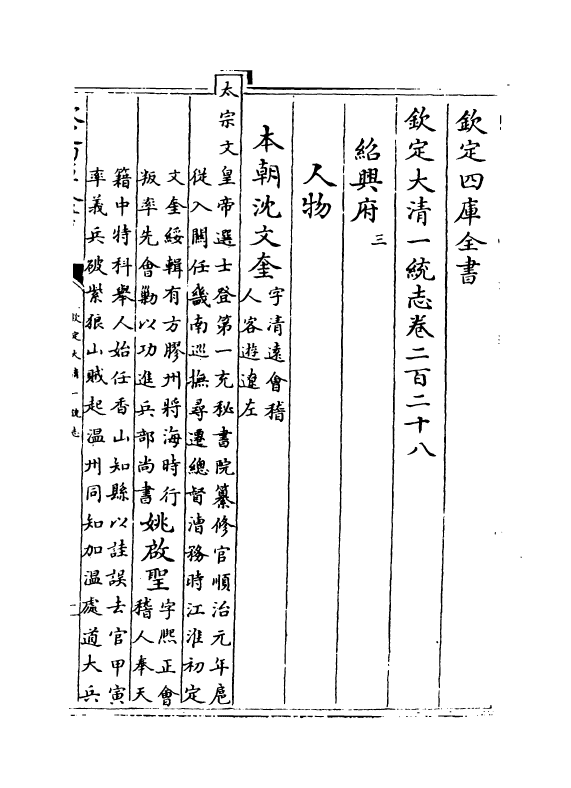 欽定四庫全書
欽定大清一統志卷二百二十八
紹興府三
人物
本朝沈文奎字清遠會稽
人客遊遼左
太宗文皇帝選士登第一充秘書院纂修官順治元年扈
從入關任畿南巡撫尋遷總督漕務時江淮初定
文奎綏輯有方膠州將海時行
叛率先會勦以功進兵部尚書姚啟聖字熙正會
稽人奉天
籍中特科舉人始任香山知縣以詿誤去官甲寅
率義兵破紫狼山賊起温州同知加温處道大兵
欽定大清一統志